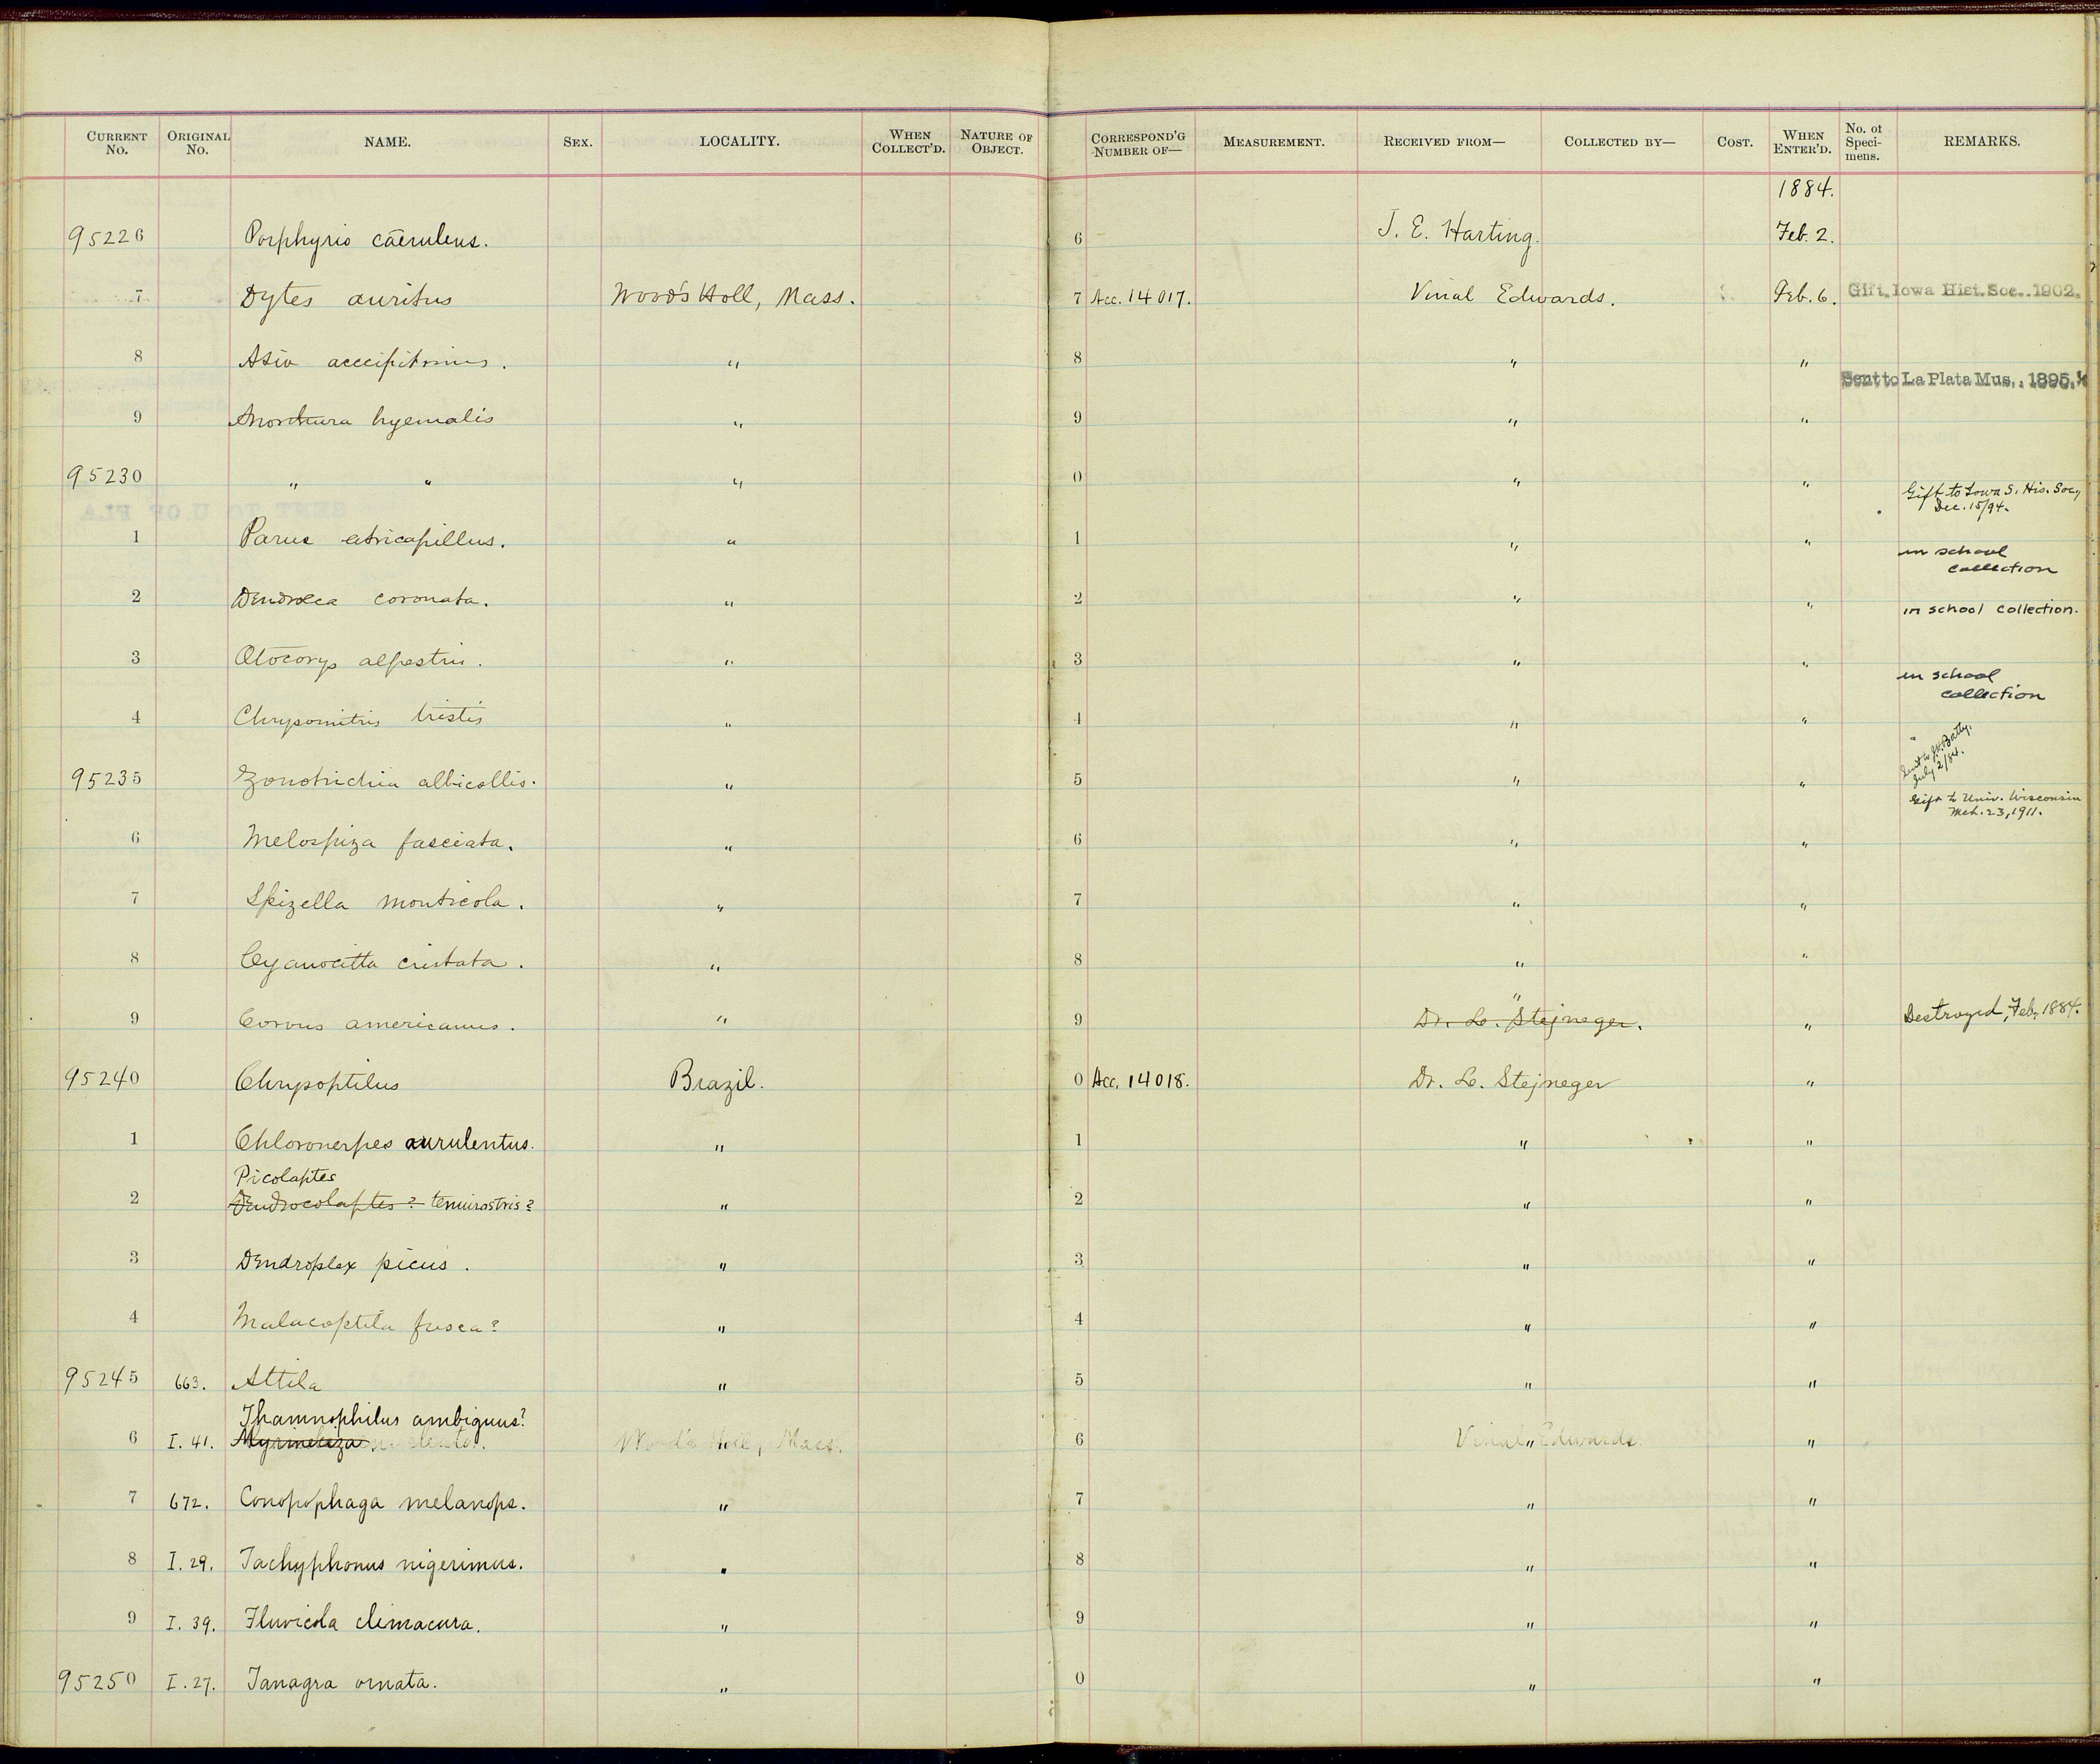 CURRENT No. ORIGINAL No. NAME. SEX. LOCALITY. WHEN COLLECT'D. NATURE OF OBJECT. CORRESPOND'G NUMBER OF— MEASUREMENT. RECEIVED FROM— COLLECTED BY— COST. WHEN ENTER'D. No. of Speci-mens. REMARKS.
1884.
95226 Porphyrio cāeruleus. 6 J. E. Harting. Feb. 2.
7 Dytes auritus Wood's Holl, Mass. 7 Acc. 14017. Vinal Edwards. Feb. 6. Gift. Iowa Hist. Soc.. 1902.
8 Asio acccipitrinus. " 8 " "
Sent to La Plata Mus.. 1895.
9 Anorthura hyemalis " 9 " "
95230 " " " 0 " "
Gift to Iowa S. His. Soc,
Dec. 15/94.
1 Parus atricapillus. " 1 " "
in school
collection
2 Dendroeca coronata. " 2 " " in school collection.
3 Otocorys alpestris. " 3 " "
in school
collection
4 Chrysomitris tristis " 4 " "
"
Sent to J. H. Batty.
July 2/84.
95235 Zonotrichia albicollis. " 5 " "
Gift to Univ. Wisconsin
Mch. 23, 1911.
6 Melospiza fasciata. " 6 " "
7 Spizella monticola. " 7 " "
8 Cyanocitta cristata. " 8 " "
"
9 Corvus americanus. " 9 Dr. L. Stejneger. " Destroyed, Feb, 1884.
95240 Chrysoptilus Brazil. 0 Acc. 14018. Dr. L. Stejneger "
1 Chloronerpes aurulentus. " 1 " "
Picolaptes
2 Dendrocolaptes ? tenuirostris? " 2 " "
3 Dendroplex picus. " 3 " "
4 Malacoptila fusca? " 4 " "
95245 663. Attila " 5 " "
Thamnophilus ambiguus?
6 I. 41. Myrmeciza Wood's Holl, Mass. " 6 Vinal Edwards " "
7 672. Conopophaga melanops. " 7 " "
8 I. 29. Tachyphonus nigerimus. " 8 " "
9 I. 39. Fluvicola climacura. " 9 " "
95250 I. 27. Tanagra ornata. " 0 " "